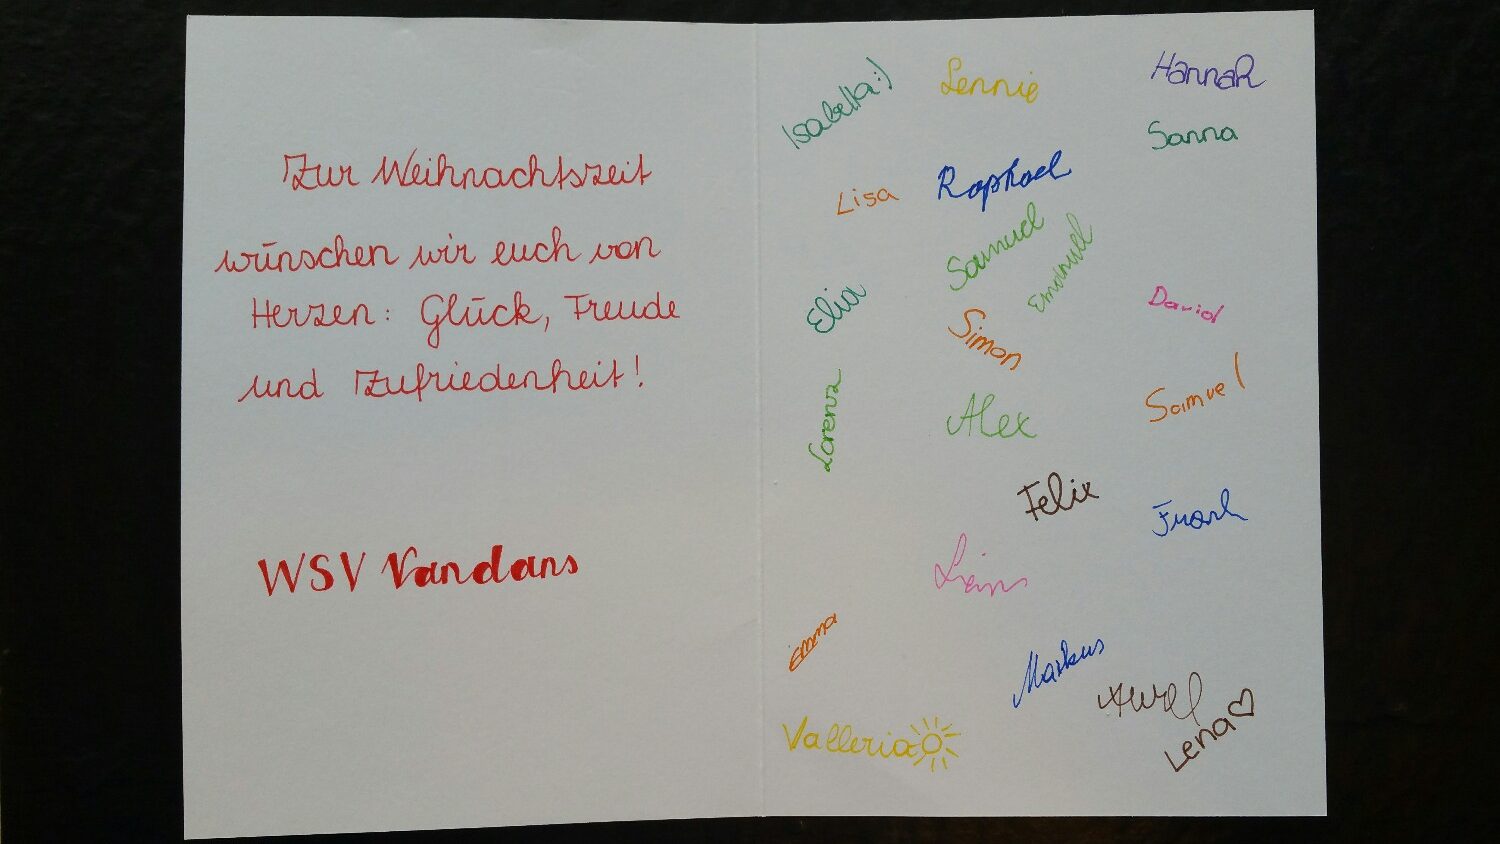 Zur Weihnachtszeit
wünschen wir euch von
Herzen: Glück, Freude
und Zufriedenheit!
WSV Vandans
Isabella :)
Lennie
Hannah
Sanna
Lisa
Raphael
Samuel
Emanuel
Elia
David
Simon
Lorenz
Alex
Samuel
Felix
Frank
Emma
Markus
Lena
Valleria